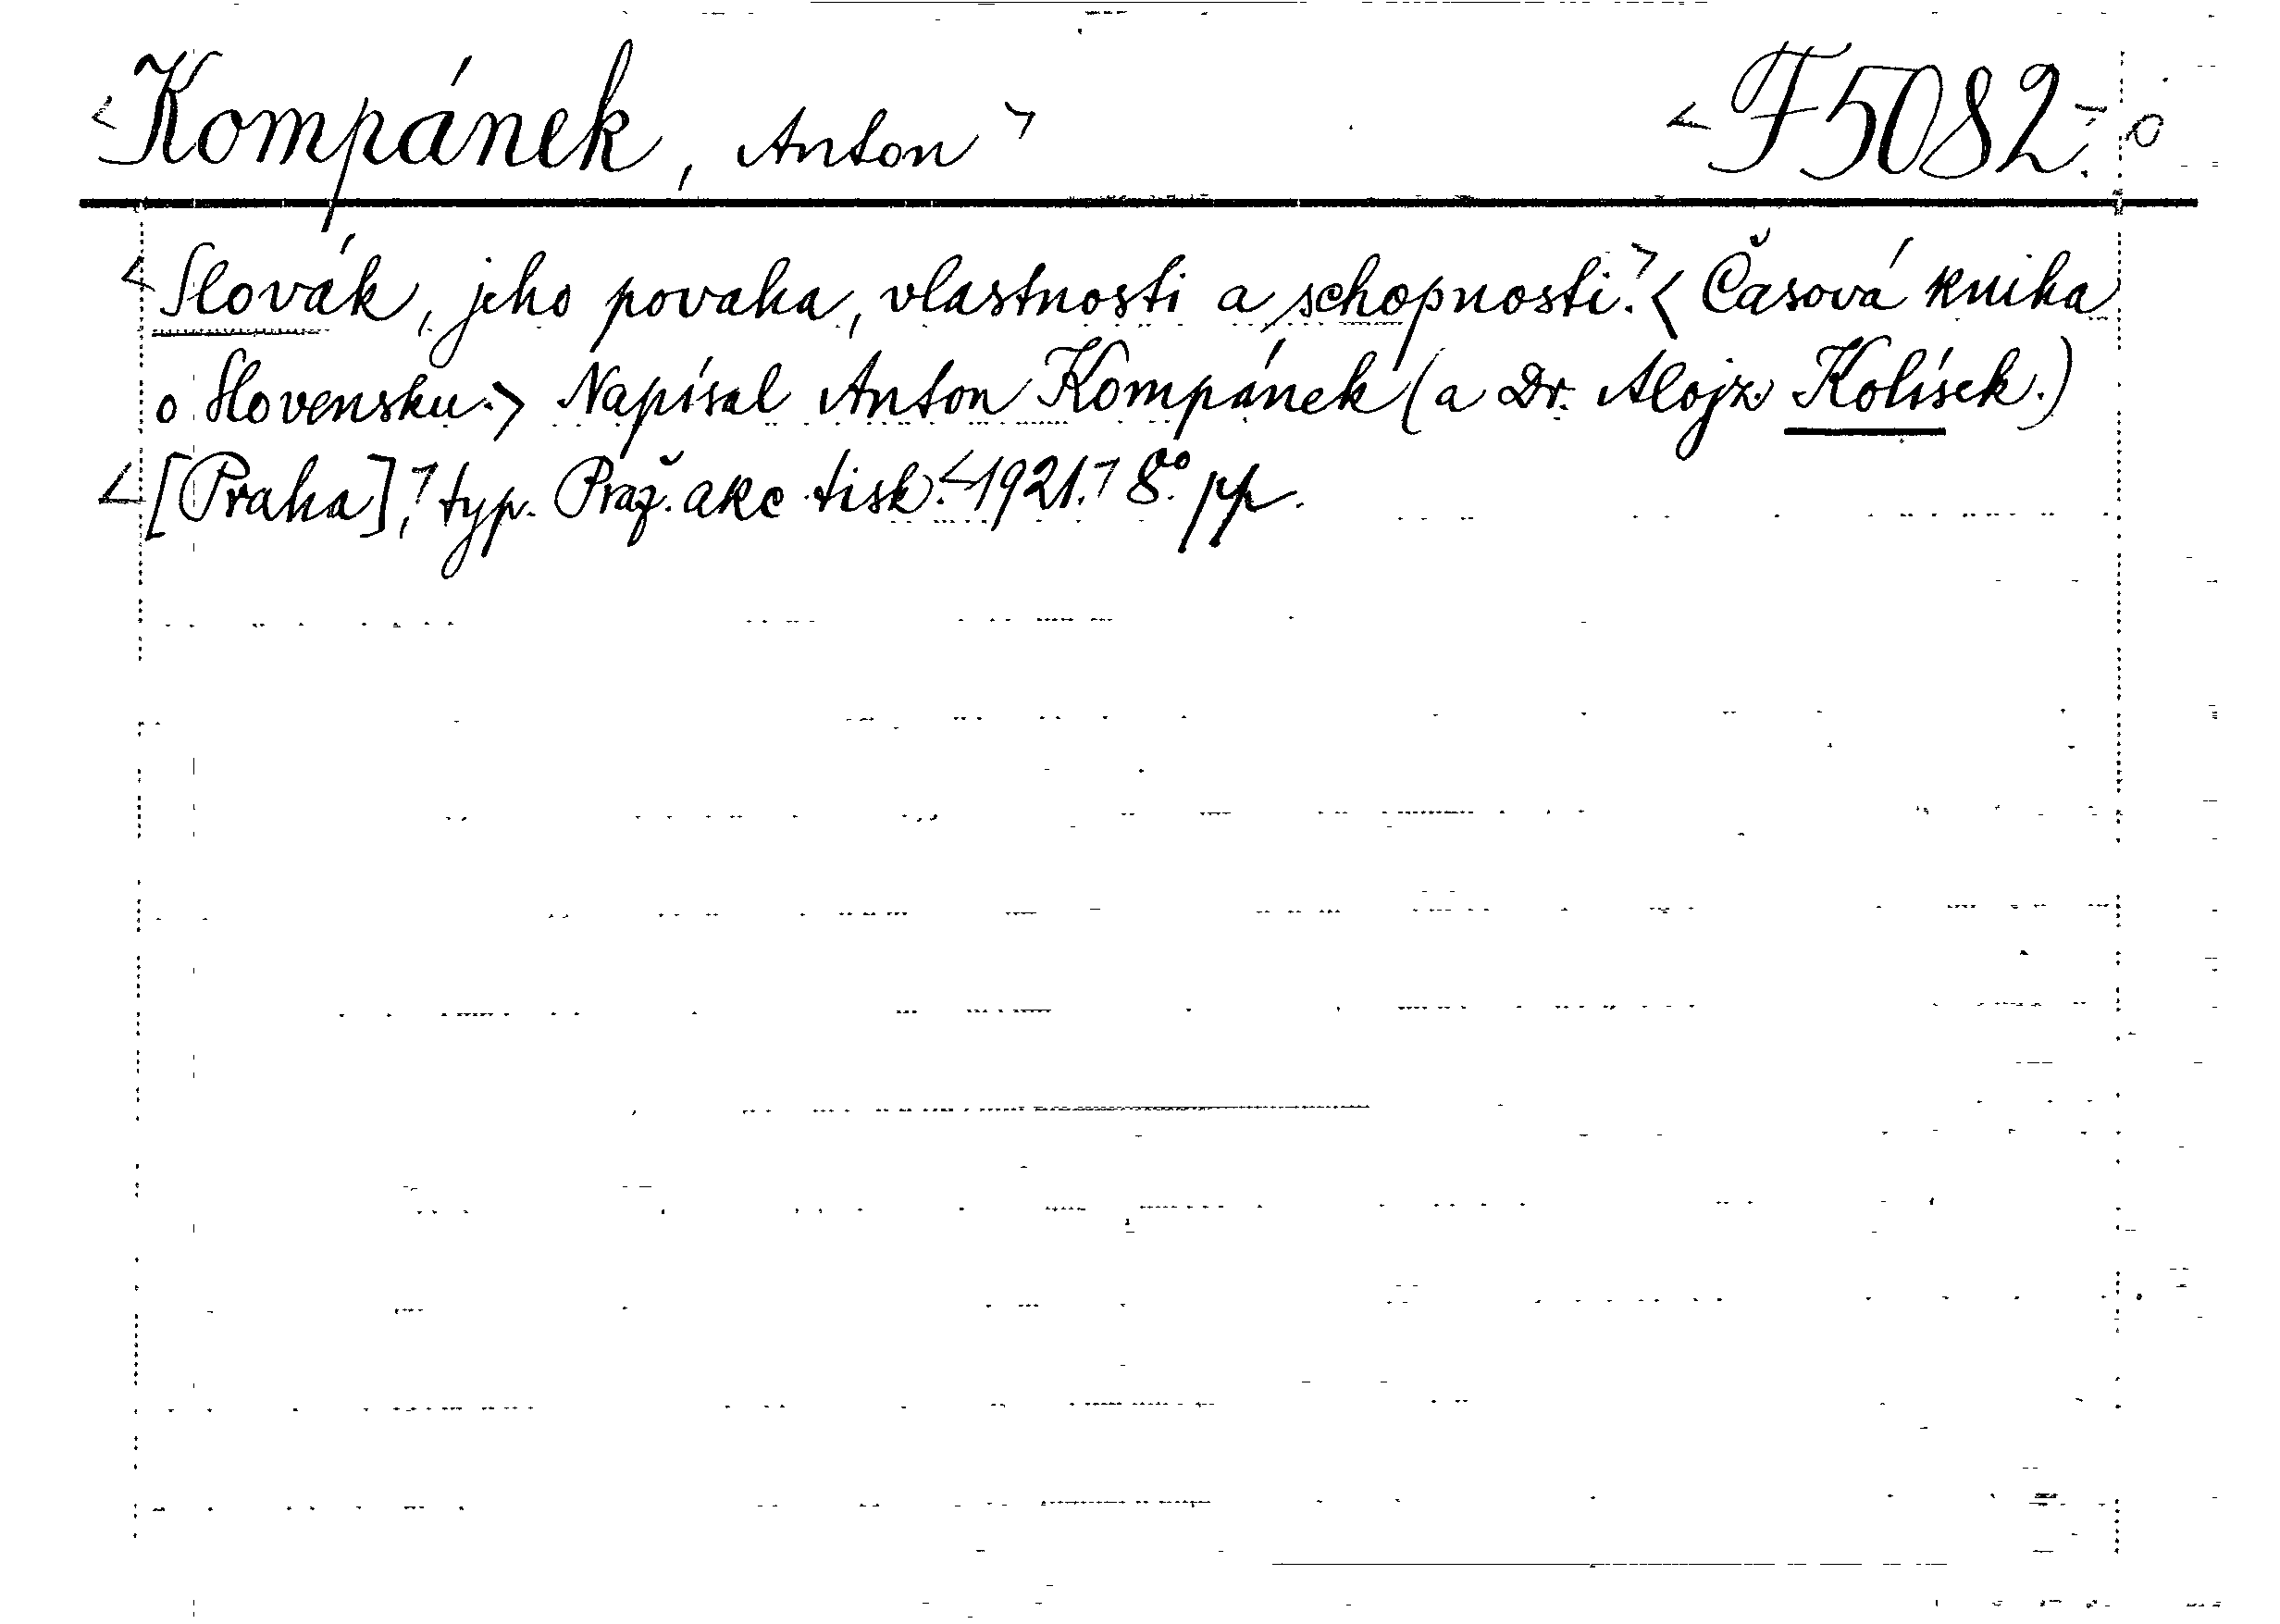 <Kompánek, Anton> <F5082.> o
<Slovák, jeho povaha, vlastnosti a schopnosti.> < Časová kniha
o Slovensku.> Napísal Anton Kompánek (a Dr. Alojz Kolísek.)
<[Praha],> typ. Praž. akc. tisk. <1921.> 8.° pp.